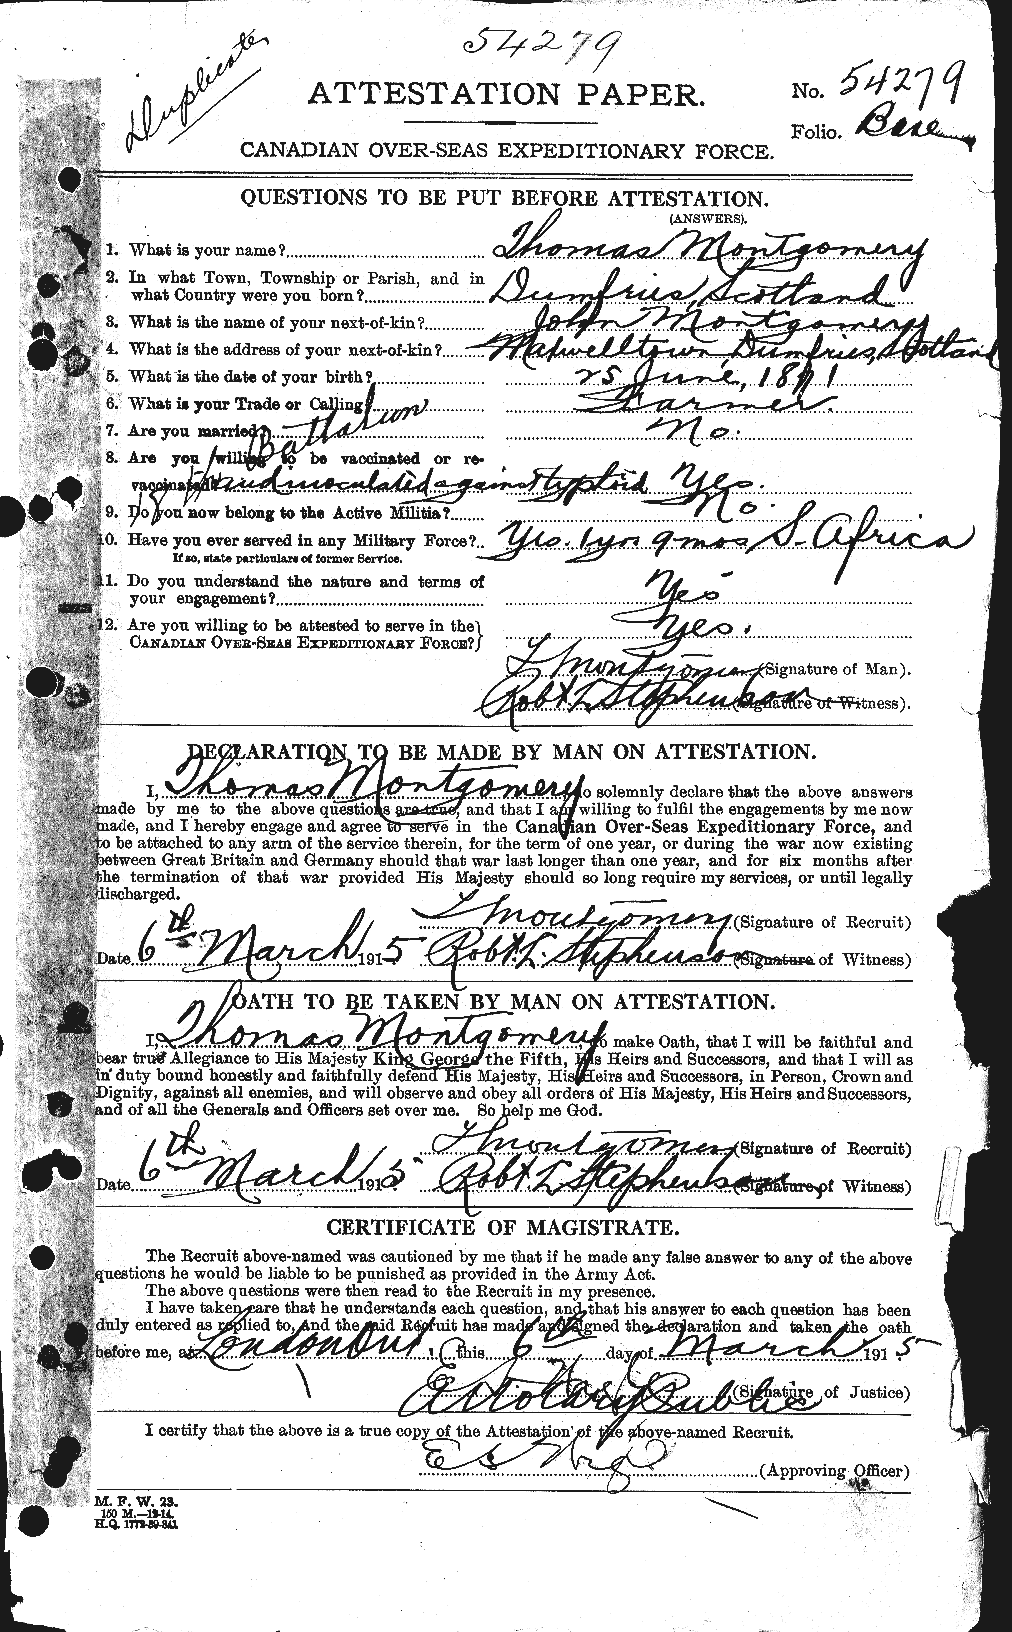 54279
Duplicate
ATTESTATION PAPER.
No. 54279
Folio. Base
CANADIAN OVER-SEAS EXPEDITIONARY FORCE.
QUESTIONS TO BE PUT BEFORE ATTESTATION.
(ANSWERS).
1. What is your name? Thomas Montgomery
2. In what Town, Township or Parish, and in
what Country were you born? Dumfries, Scotland
3. What is the name of your next-of-kin? John Montgomery
4. What is the address of your next-of-kin? Maxwelltown Dumfries, Scotland
5. What is the date of your birth? 25 June, 1871
6. What is your Trade or Calling? Farmer.
7. Are you married? No.
18th Battalion
8. Are you willing to be vaccinated or re-
vaccinated? and inoculated against typhoid Yes.
9. Do you now belong to the Active Militia? No.
10. Have you ever served in any Military Force? Yes. 1 yr 9 mos S. Africa
If so, state particulars of former Service.
11. Do you understand the nature and terms of
your engagement? Yes
12. Are you willing to be attested to serve in the
CANADIAN OVER-SEAS EXPEDITIONARY FORCE? Yes.
T Montgomery (Signature of Man).
Robt L Stephenson (Signature of Witness).
DECLARATION TO BE MADE BY MAN ON ATTESTATION.
I, Thomas Montgomery, do solemnly declare that the above answers
made by me to the above questions are true, and that I am willing to fulfil the engagements by me now
made, and I hereby engage and agree to serve in the Canadian Over-Seas Expeditionary Force, and
to be attached to any arm of the service therein, for the term of one year, or during the war now existing
between Great Britain and Germany should that war last longer than one year, and for six months after
the termination of that war provided His Majesty should so long require my services, or until legally
discharged.
T Montgomery (Signature of Recruit)
Date 6th March 1915 Robt. L. Stephenson (Signature of Witness)
OATH TO BE TAKEN BY MAN ON ATTESTATION.
I, Thomas Montgomery, do make Oath, that I will be faithful and
bear true Allegiance to His Majesty King George the Fifth, His Heirs and Successors, and that I will as
in duty bound honestly and faithfully defend His Majesty, His Heirs and Successors, in Person, Crown and
Dignity, against all enemies, and will observe and obey all orders of His Majesty, His Heirs and Successors,
and of all the Generals and Officers set over me. So help me God.
T Montgomery (Signature of Recruit)
Date 6th March 1915 Robt. L Stephenson (Signature of Witness)
CERTIFICATE OF MAGISTRATE.
The Recruit above-named was cautioned by me that if he made any false answer to any of the above
questions he would be liable to be punished as provided in the Army Act.
The above questions were then read to the Recruit in my presence.
I have taken care that he understands each question, and that his answer to each question has been
duly entered as replied to, and the said Recruit has made and signed the declaration and taken the oath
before me, at London Ont, this 6th day of March 1915
Notary Public (Signature of Justice)
I certify that the above is a true copy of the Attestation of the above-named Recruit.
(Approving Officer)
M. F. W. 23.
150 M.—12-14.
H.Q. 1772-39-841.